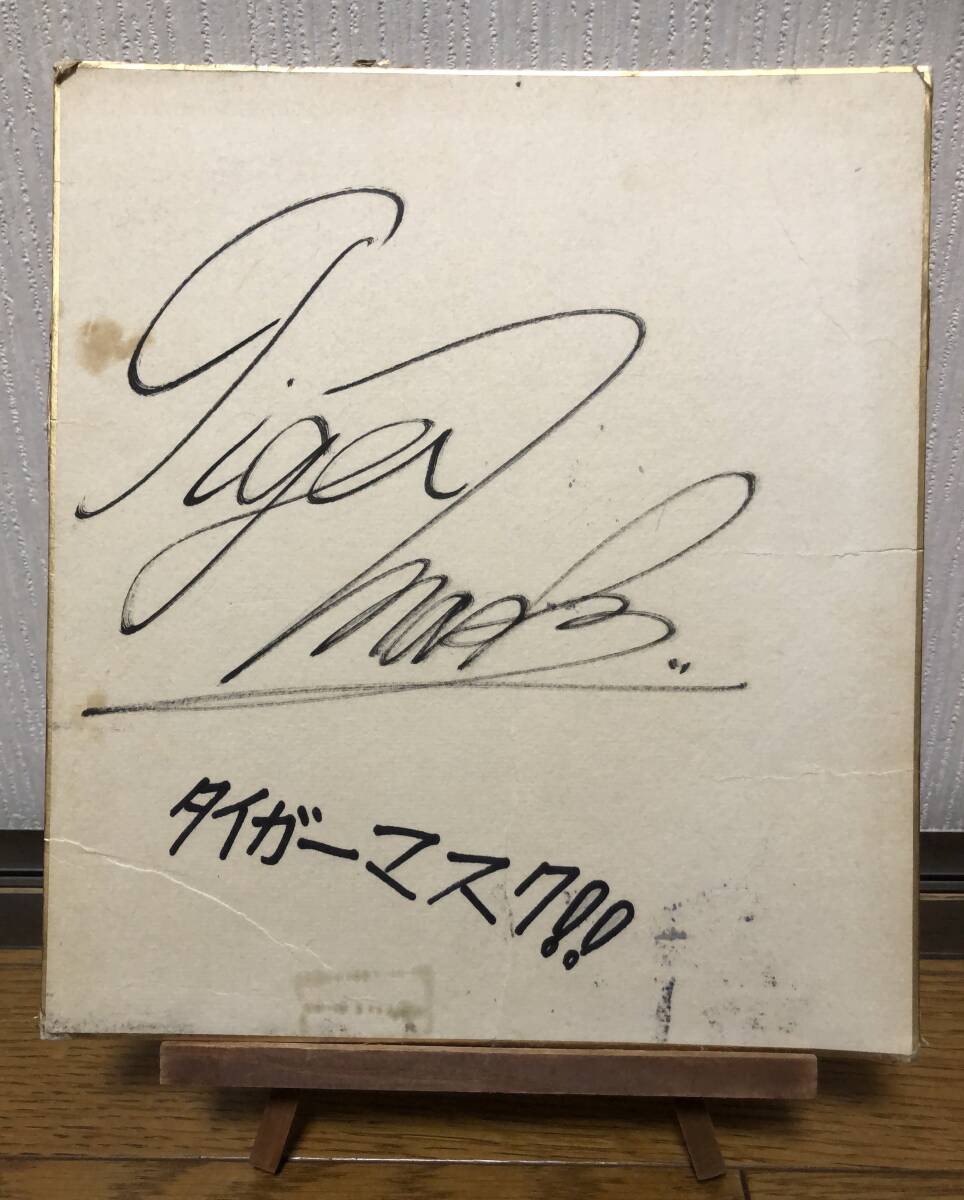 Tiger
Mask
タイガーマスク!!